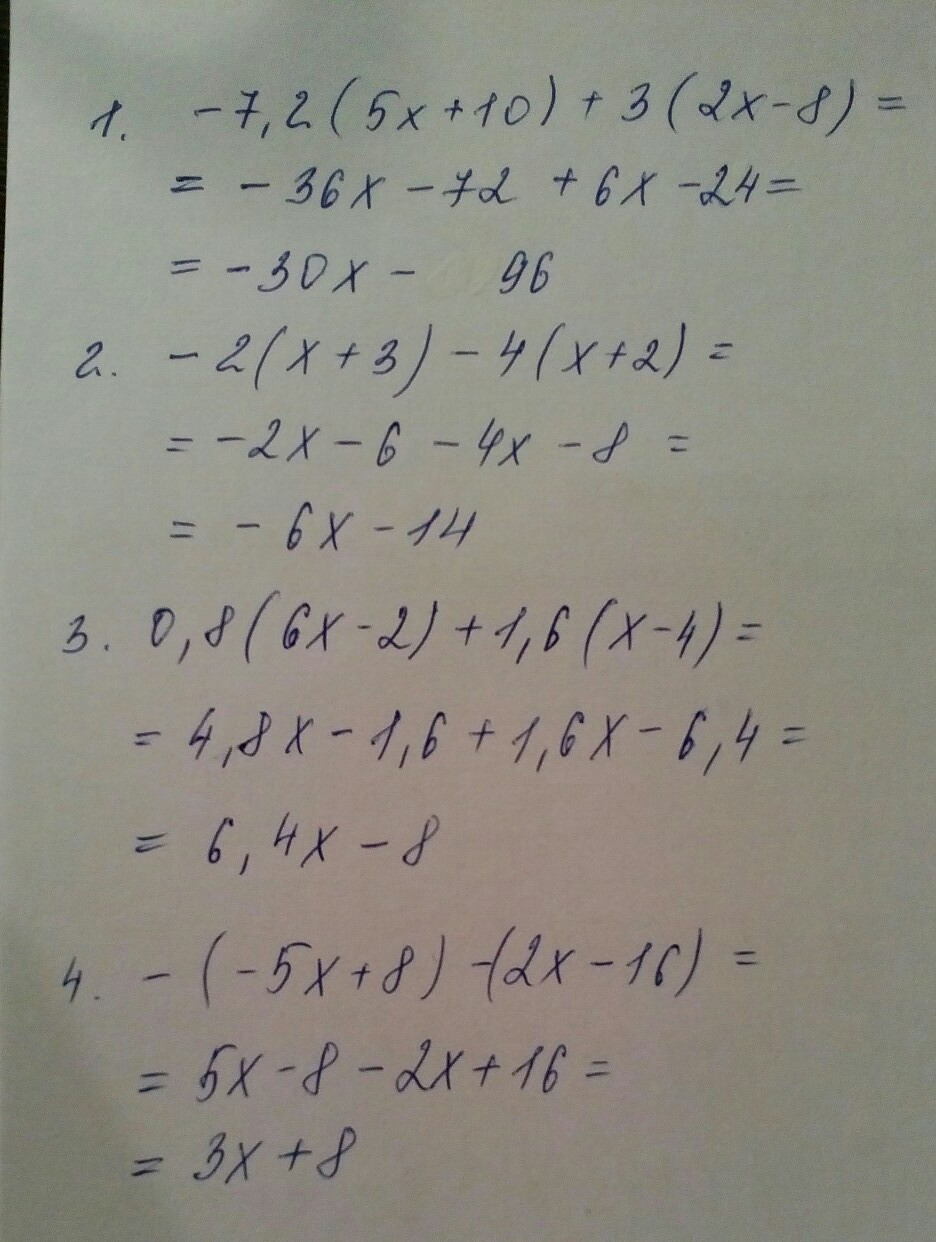 1. -7,2(5x+10)+3(2x-8)=
= -36x-72+6x-24=
= -30x- 96
2. -2(x+3)-4(x+2)=
= -2x-6-4x-8=
= -6x-14
3. 0,8(6x-2)+1,6(x-4)=
= 4,8x-1,6+1,6x-6,4=
= 6,4x-8
4. -(-5x+8)-(2x-16)=
= 5x-8-2x+16=
= 3x+8